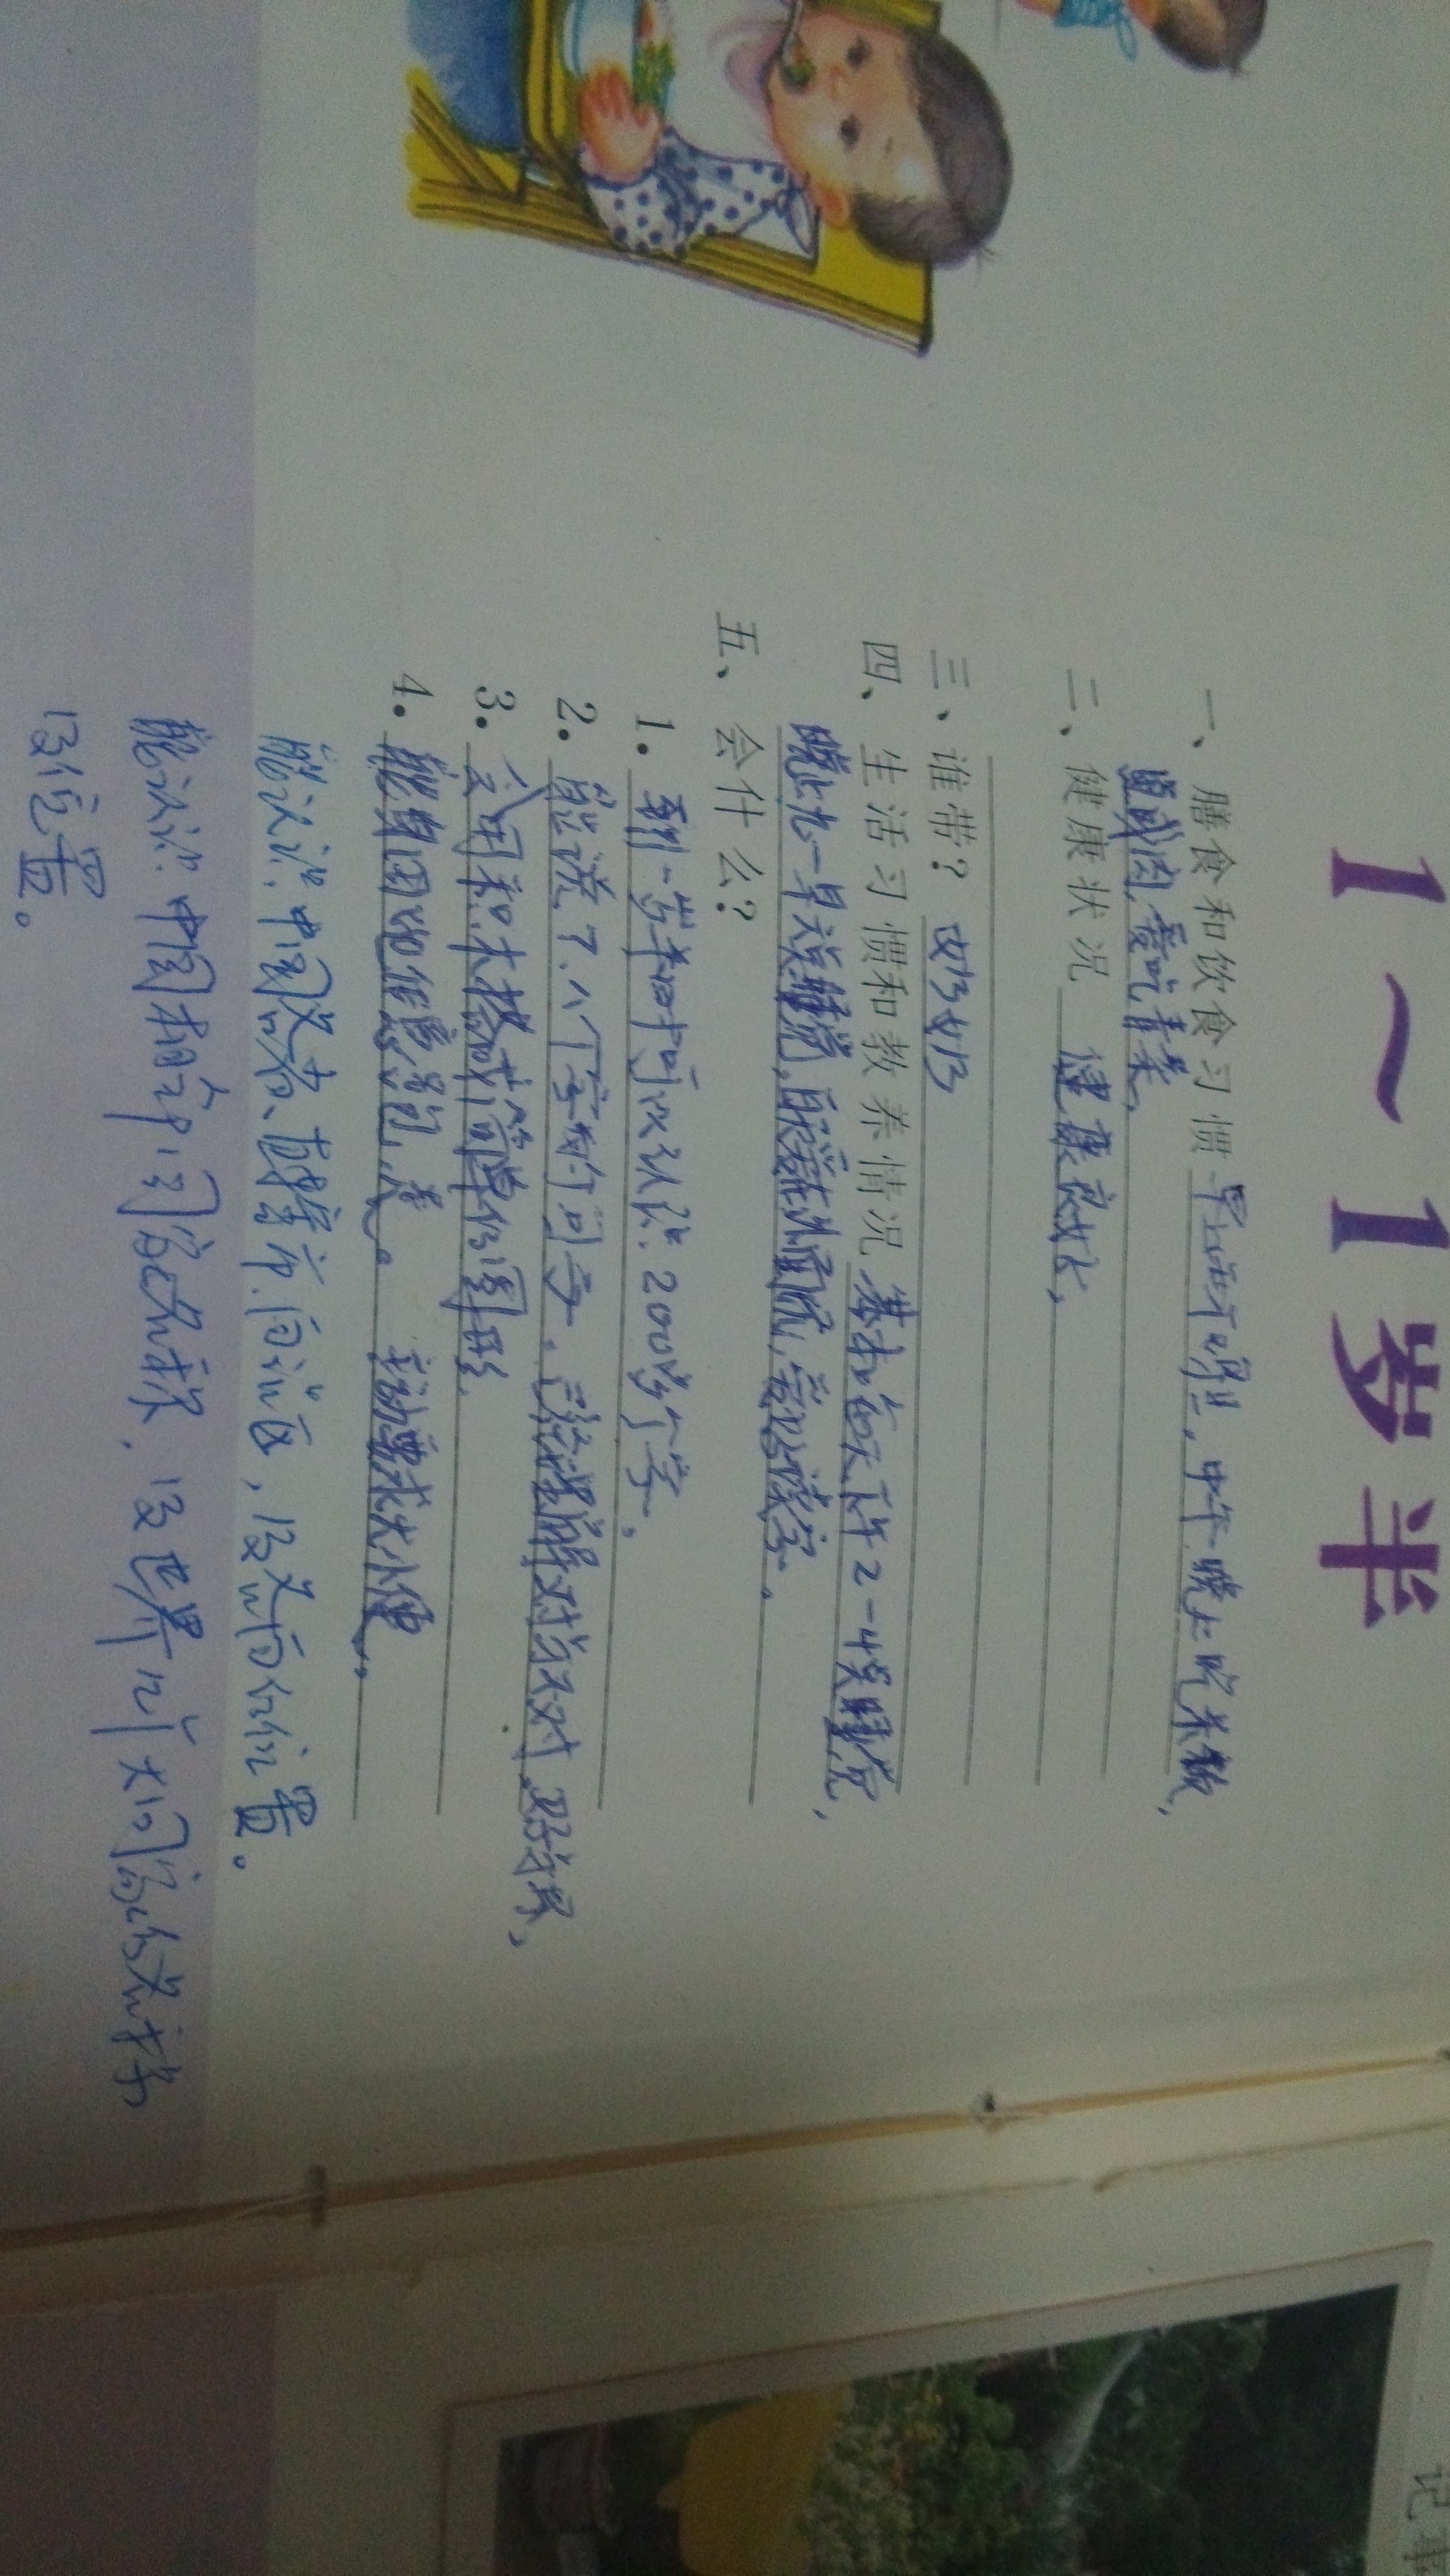 1～1岁半
记事
一、膳食和饮食习惯 早上 鸡旦，中午晚上吃米饭，
鱼或肉，爱吃青菜，
二、健康状况 健康良好，
三、谁带？ 奶奶
四、生活习惯和教养情况 基本上每天下午2-4点睡觉，
晚上九-早六点睡觉，白天爱在外面玩，爱好读字。
五、会什么？
1. 到一岁半时可以认识200多个字，
2. 能说7、八个字的句子，已经理解对与不对，好与坏，
3. 会用积木搭成简单的图形，
4. 能 跑， 走。 主动要求大小便，
能认识中国各省、直辖市、自治区，及各自的位置。
能认识中国相邻国家名称，及世界几个大国家的名称
及位置。